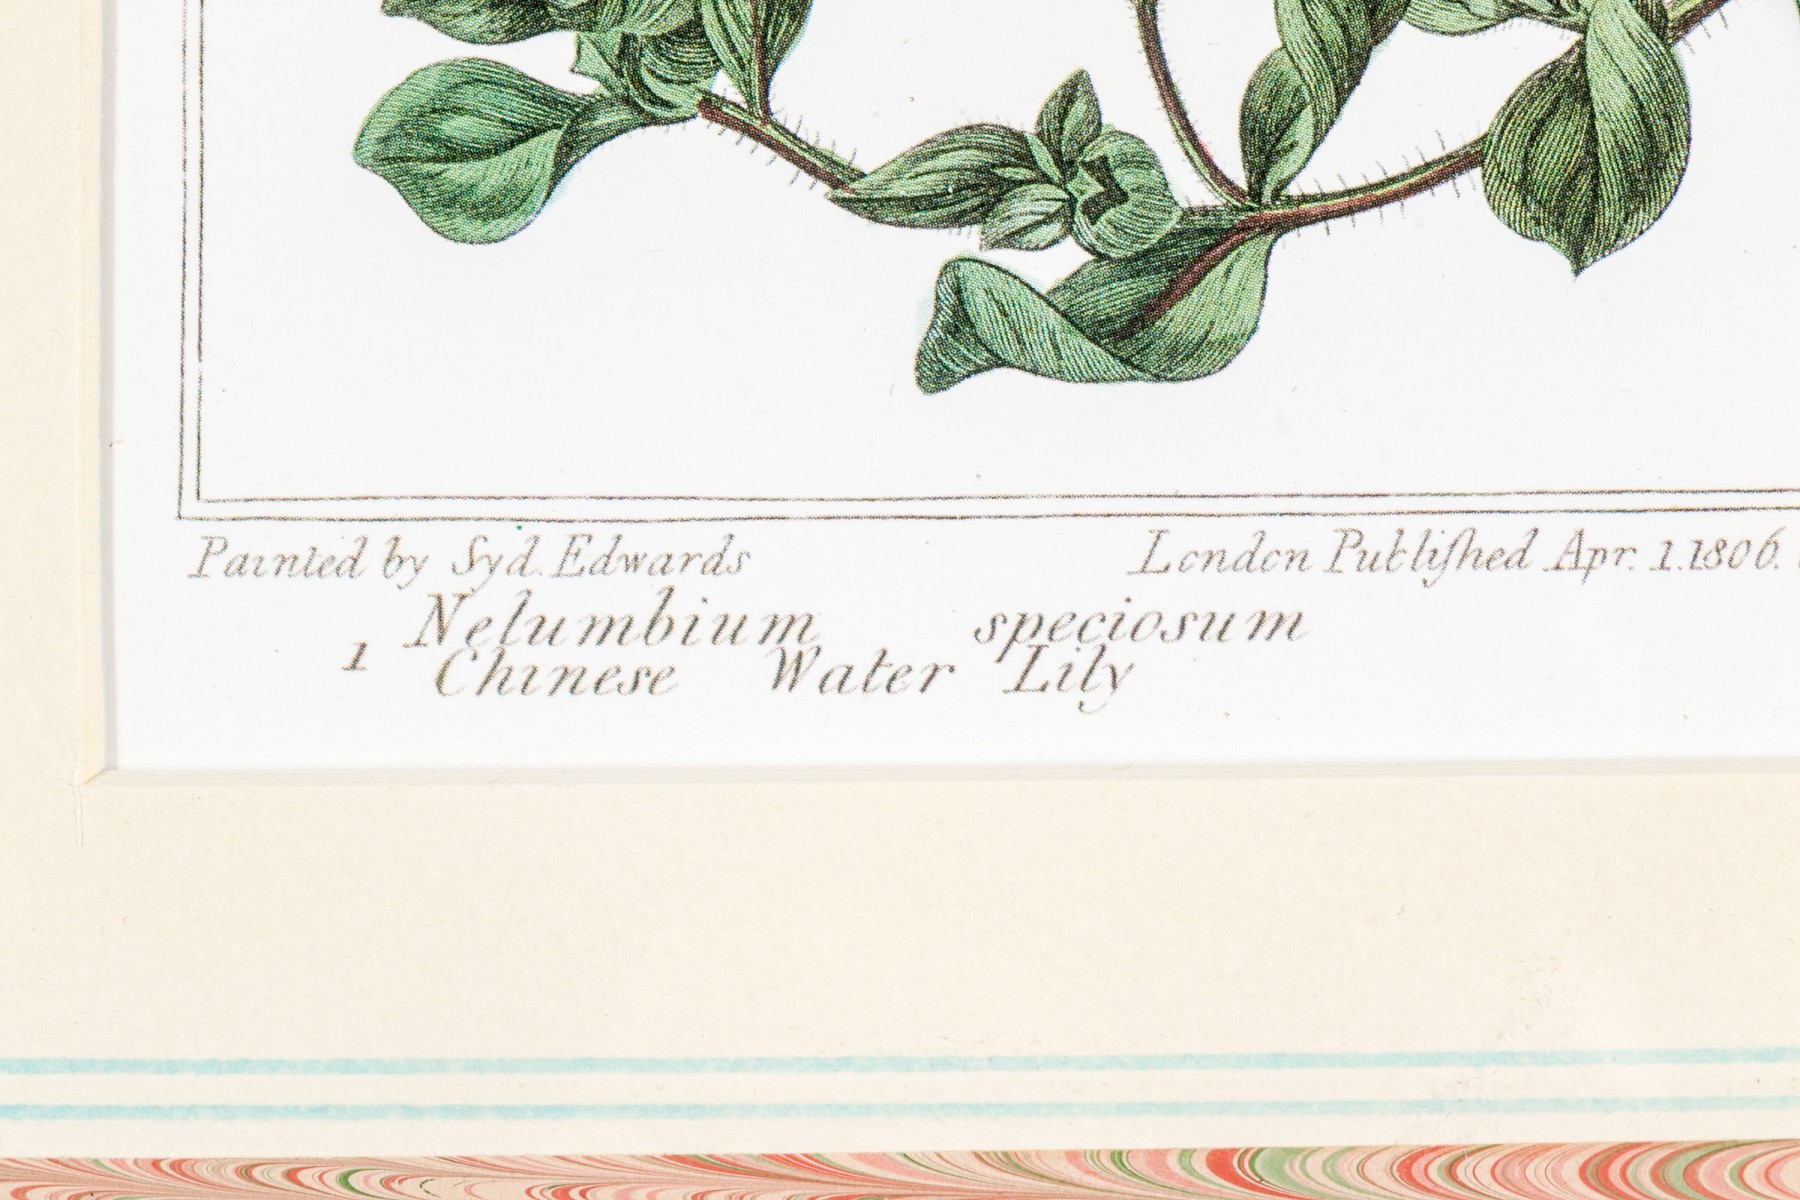 Painted by Syd. Edwards London Publiſhed Apr. 1. 1806.
Nelumbium speciosum
1 Chinese Water Lily